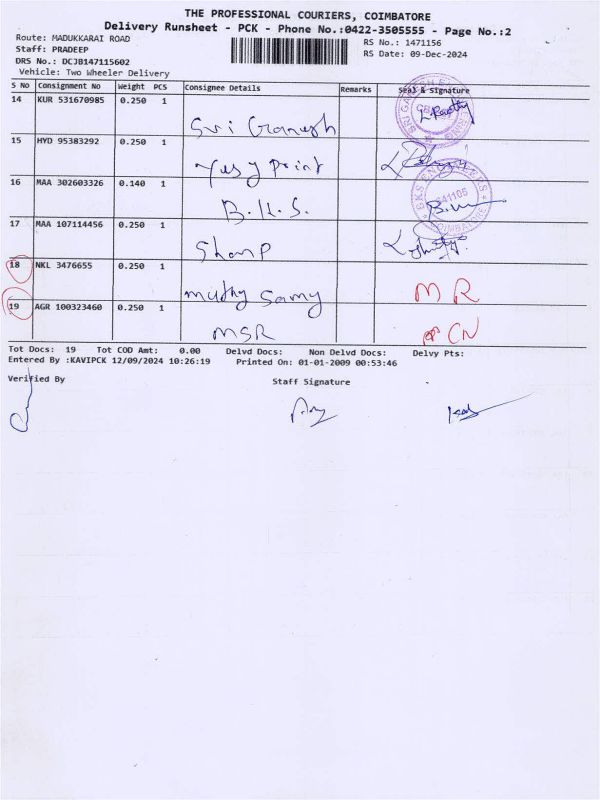 THE PROFESSIONAL COURIERS, COIMBATORE
Delivery Runsheet - PCK - Phone No.:0422-3505555 - Page No.:2
Route: MADUKKARAI ROAD RS No.: 1471156
Staff: PRADEEP RS Date: 09-Dec-2024
DRS No.: DCJB147115602
Vehicle: Two Wheeler Delivery
S No Consignment No Weight PCS Consignee Details Remarks Seal & Signature
14 KUR 531670985 0.250 1
Sri Ganesh
15 HYD 95383292 0.250 1
Print
16 MAA 302603326 0.140 1
B.K.S.
641105
COIMBATORE
17 MAA 107114456 0.250 1
Sharp
18 NKL 3476655 0.250 1
muthu Samy MR
19 AGR 100323460 0.250 1
MSR CN
Tot Docs: 19 Tot COD Amt: 0.00 Delvd Docs: Non Delvd Docs: Delvy Pts:
Entered By :KAVIPCK 12/09/2024 10:26:19 Printed On: 01-01-2009 00:53:46
Verified By Staff Signature